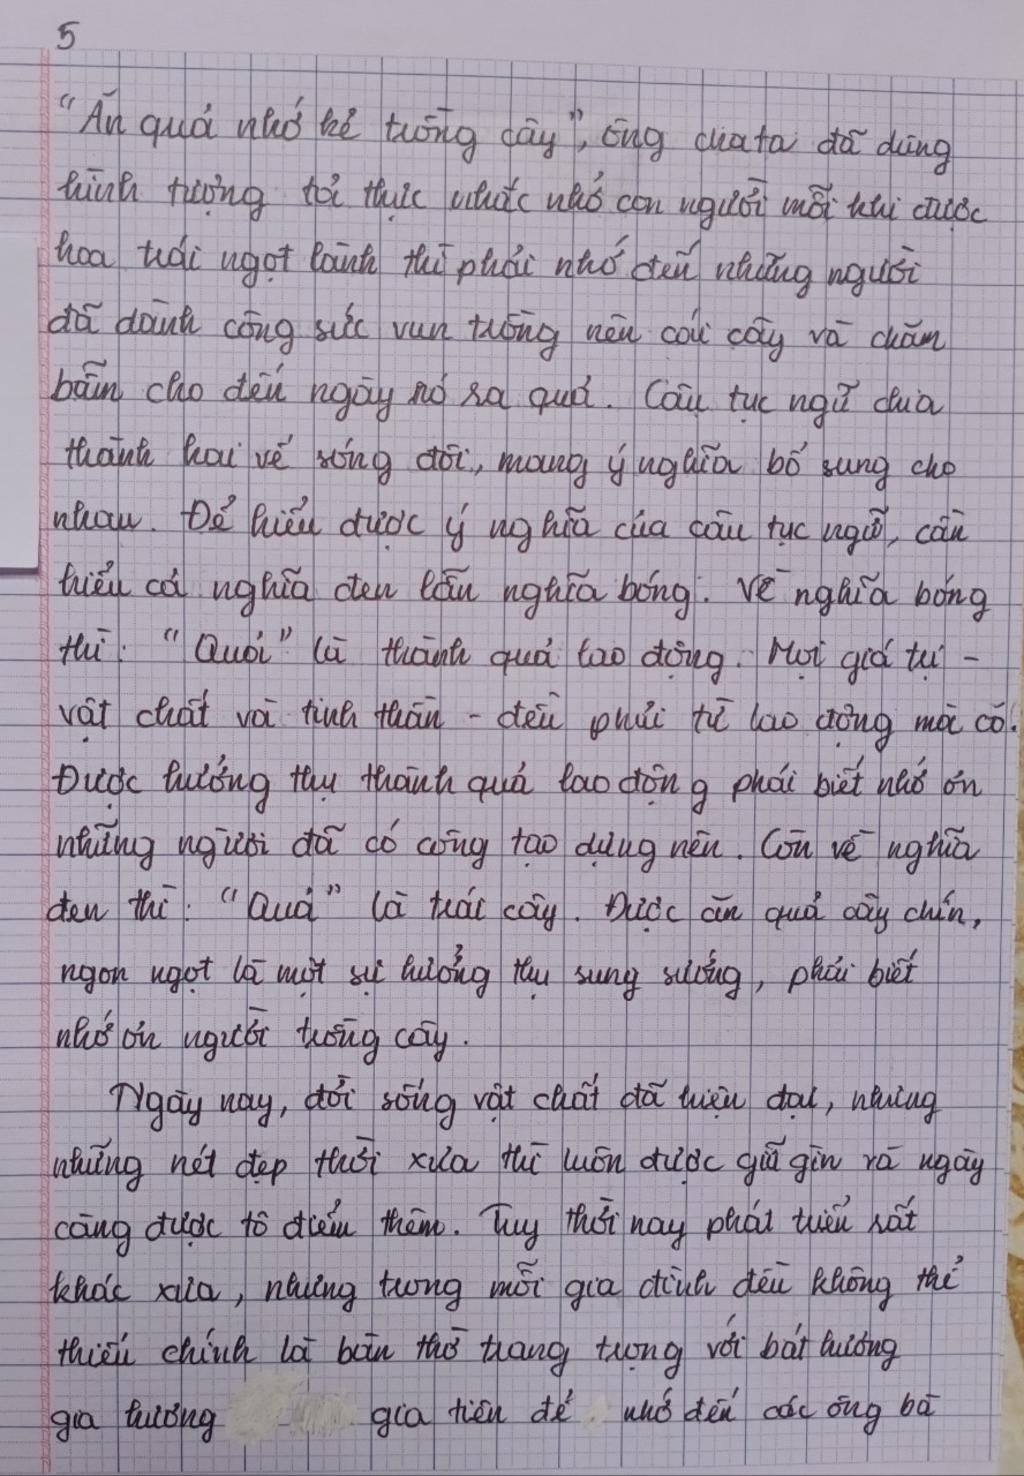 5
"Ăn quả nhớ kẻ trồng cây", ông cha ta đã dùng
hình tượng tả thực nhắc nhở con người mỗi khi được
hoa trái ngọt lành thì phải nhớ đến những người
đã dành công sức vun trồng nên cái cây và chăm
bẵm cho đến ngày nó ra quả. Câu tục ngữ chia
thành hai vế sóng đôi, mang ý nghĩa bổ sung cho
nhau. Để hiểu được ý nghĩa của câu tục ngữ, cần
hiểu cả nghĩa đen lẫn nghĩa bóng. Về nghĩa bóng
thì: "Quả" là thành quả lao động. Mọi giá trị -
vật chất và tinh thần - đều phải từ lao động mà có.
Được hưởng thụ thành quả lao động phải biết nhớ ơn
những người đã có công tạo dựng nên. Còn về nghĩa
đen thì: "Quả" là trái cây. Được ăn quả cây chín,
ngon ngọt là một sự hưởng thụ sung sướng, phải biết
nhớ ơn người trồng cây.
Ngày nay, đời sống vật chất đã hiện đại, nhưng
những nét đẹp thời xưa thì luôn được giữ gìn và ngày
càng được tô điểm thêm. Tuy thời nay phát triển rất
khác xưa, nhưng trong mỗi gia đình đều không thể
thiếu chính là bàn thờ trang trọng với bát hương
gia hương gia tiên để nhớ đến các ông bà